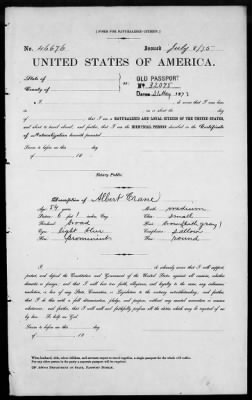 [FORM FOR NATURALIZED CITIZEN.]
No. 46676 Issued July 8/75
UNITED STATES OF AMERICA.
State of
County of
ss:
OLD PASSPORT
No. 32075
Dated 21 May 1873
I, do swear that I was born
in on or about the day
of that I am a NATURALIZED AND LOYAL CITIZEN OF THE UNITED STATES,
and about to travel abroad; and further, that I am the IDENTICAL PERSON described in the Certificate
of Naturalization herewith presented.
Sworn to before me this day
of 18
Notary Public.
Description of Albert Crane
Age: 54 years Mouth: medium
Stature: 6 feet inches, Eng. Chin: small
Forehead: broad Hair: brown (gray)
Eyes: light blue Complexion: sallow
Nose: prominent Face: round
I, do solemnly swear that I will support,
protect, and defend the Constitution and Government of the United States against all enemies, whether
domestic or foreign; and that I will bear true faith, allegiance, and loyalty to the same, any ordinance,
resolution, or law of any State, Convention, or Legislature to the contrary notwithstanding; and further,
that I do this with a full determination, pledge, and purpose, without any mental reservation or evasion
whatsoever; and further, that I will well and faithfully perform all the duties which may be required of me
by law. So help me God.
Sworn to before me this day
of 18
When husband, wife, minor children, and servants expect to travel together, a single passport for the whole will suffice.
For any other person in the party a separate passport will be required.